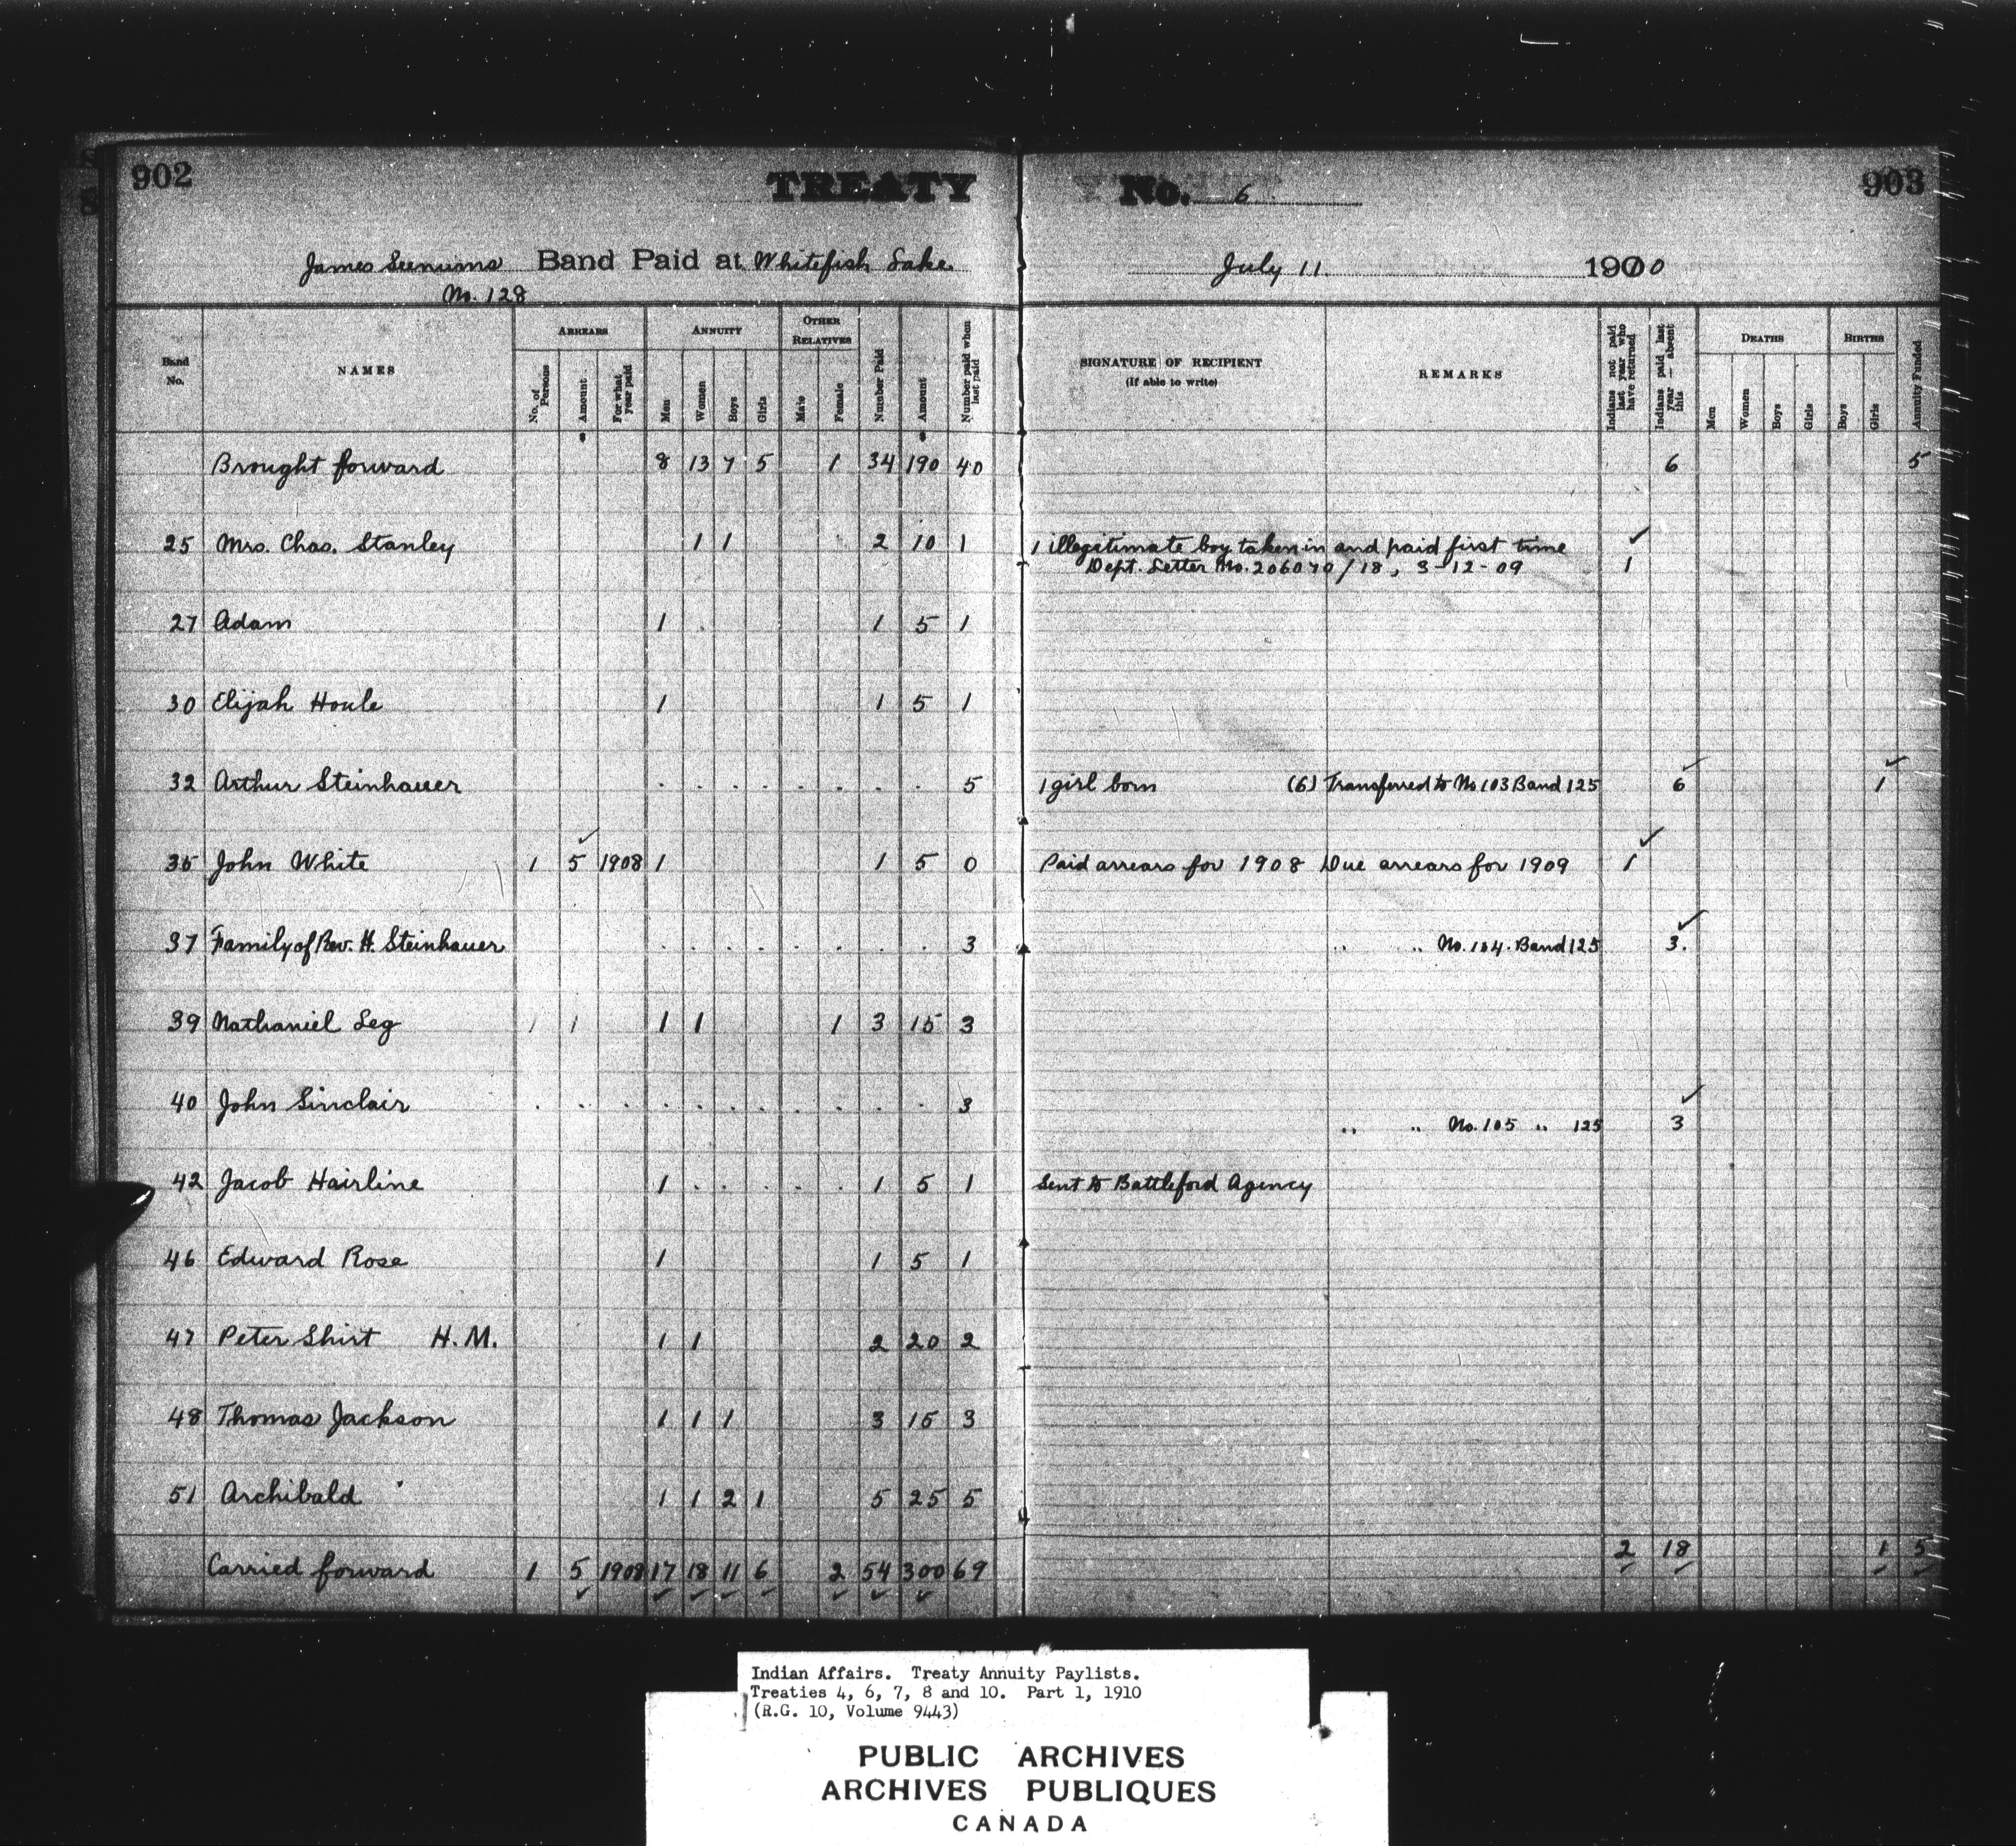 902
TREATY
No. 6
903
James Seenums Band Paid at Whitefish Lake
July 11 1910
No. 128
Band No.
NAMES
ARREARS
No. of Persons
Amount
For what year paid
ANNUITY
Men
Women
Boys
Girls
OTHER RELATIVES
Male
Female
Number Paid
Amount
Number paid when last paid
SIGNATURE OF RECIPIENT
(If able to write)
REMARKS
Indians not paid last year who have returned
Indians paid last year — absent this
DEATHS
Men
Women
Boys
Girls
BIRTHS
Boys
Girls
Annuity Funded
Brought forward 8 13 7 5 1 34 190 40 6 5
25 Mrs. Chas. Stanley 1 1 2 10 1 1 illegitimate boy taken in and paid first time ✓
Dept. Letter No. 206070/18, 3-12-09 1
27 Adam 1 1 5 1
30 Elijah Houle 1 1 5 1
32 Arthur Steinhauer 5 1 girl born (6) Transferred to No 103 Band 125 6 1
35 John White 1 5 1908 1 1 5 0 Paid arrears for 1908 Due arrears for 1909 1
37 Family of Rev. H. Steinhauer 3 " " No. 104. Band 125 3.
39 Nathaniel Leg 1 1 1 1 1 3 15 3
40 John Sinclair 3
" " No. 105 " 125 3
42 Jacob Hairline 1 1 5 1 Sent to Battleford Agency
46 Edward Rose 1 1 5 1
47 Peter Shirt H. M. 1 1 2 20 2
48 Thomas Jackson 1 1 1 3 15 3
51 Archibald 1 1 2 1 5 25 5
Carried forward 1 5 1908 17 18 11 6 2 54 300 69 2 18 1 5
Indian Affairs. Treaty Annuity Paylists.
Treaties 4, 6, 7, 8 and 10. Part 1, 1910
(R.G. 10, Volume 9443)
PUBLIC ARCHIVES
ARCHIVES PUBLIQUES
CANADA